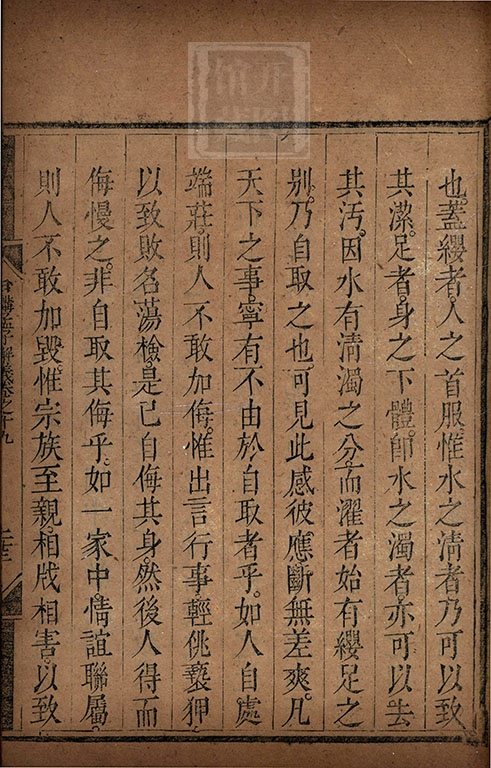 也。蓋纓者。人之首服。惟水之清者。乃可以致
其潔。足者。身之下體。卽水之濁者。亦可以去
其汚。因水有清濁之分。而濯者始有纓足之
别。乃自取之也。可見此感彼應。斷無差爽。凡
天下之事。寧有不由於自取者乎。如人自處
端莊。則人不敢加侮。惟出言行事。輕佻褻狎。
以致敗名蕩檢。是已自侮其身。然後人得而
侮慢之。非自取其侮乎。如一家中。情誼聯屬。
則人不敢加毀。惟宗族至親。相戕相害。以致